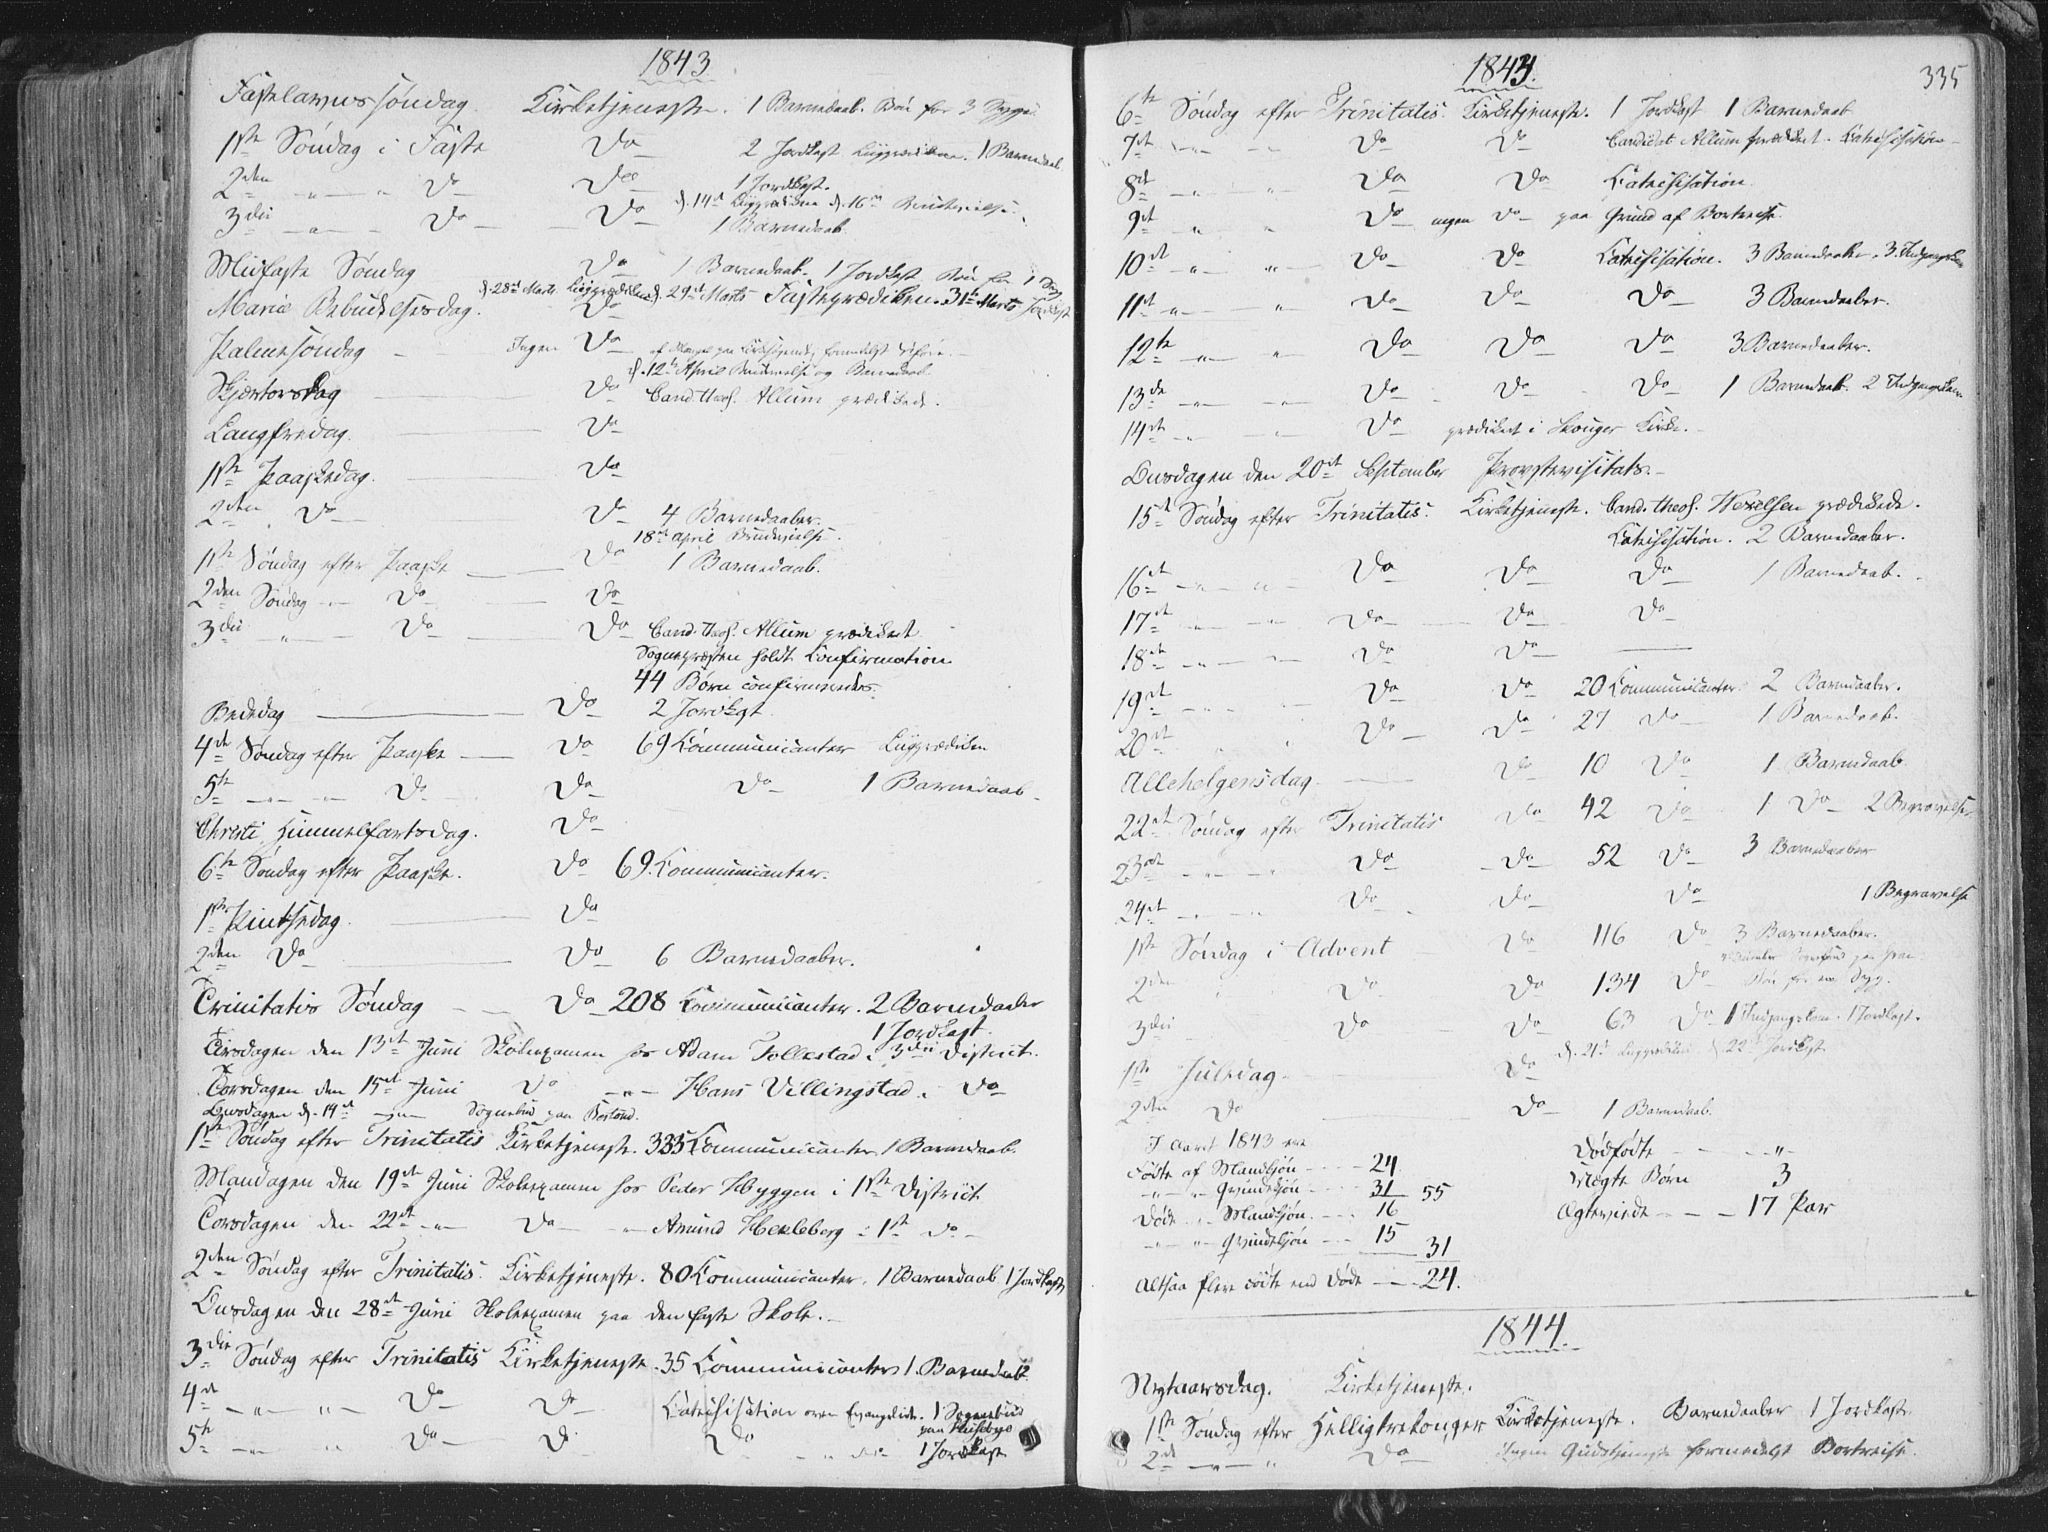 1843
Fastelavnssöndag. Kirketjeneste. 1 Barnedaab. Bön for 3 Syge
1ste Söndag i Faste Do 2 Jordkast Liigprædiken. 1 Barnedaab
2den " Do Do 1 Jordkast.
d. 14de Liigprædiken d. 16de Brudevielse
3die " Do Do 1 Barnedaab
Midfaste Söndag Do 1 Barnedaab. 1 Jordkast Bön for 1 Syg
d. 28de Marts Liigprædiken d. 29de Marts Fasteprædiken. 31te Marts Jordkast
Mariæ Bebudelsesdag. Do
Palmesöndag Ingen Do af Mangel paa Kirkesögende, formedelst
d. 12te April Brudevielse og Barnedaab
Skjærtorsdag Do Cand. theol. Allum prædikede.
Langfredag. Do
1ste Paaskedag. Do
2den Do Do 4 Barnedaaber.
18de April Brudevielse.
1ste Söndag efter Paaske Do 1 Barnedaab.
2den Söndag " Do Do
3die " Do Do Cand. theol. Allum prædiket
Sognepræsten holdt Confirmation
44 Börn confirmeredes.
Bededag Do 2 Jordkast
4de Söndag efter Paaske Do 69 Kommunicanter Liigprædiken
5te " " Do Do Do 1 Barnedaab
Christi Himmelfartsdag. Do
6te Söndag efter Paaske. Do 69. Kommunicanter.
1ste Pintsedag. Do
2den Do Do 6 Barnedaaber.
Trinitatis Söndag Do 208 Kommunicanter. 2 Barnedaaber
1 Jordkast.
Tirsdagen den 13de Juni Skoleexamen hos Adam Tollestad i 3die District.
Torsdagen den 15de Juni Do " Hans Villingstad i Do
Onsdagen d. 14de Sognebud paa
1ste Söndag efter Trinitatis Kirketjeneste. 333 Kommunicanter, 1 Barnedaab.
Mandagen den 19de Juni Skoleexamen hos Peder Hyggen i 1ste District
Torsdagen den 22de " Do " Amund Hekleberg i 1ste do
2den Söndag efter Trinitatis. Kirketjeneste. 80 Kommunicanter. 1 Barnedaab 1 Jordkast
Onsdagen den 28de Juni Skoleexamen paa den faste Skole.
3die Söndag efter Trinitatis Kirketjeneste. 35 Kommunicanter 1. Barnedaab
4de " " Do Do Katechisation over Evangeliet. 1 Sognebud
paa Huseby
5te " " Do Do Do 1 Jordkast
1843.
335
6te Söndag efter Trinitatis. Kirketjeneste. 1 Jordkast 1 Barnedaab
7de " " Do Do Candidat Allum prædiket. Katechisation
8de " " Do Do Katechisation.
9de " " Do ingen Do paa Grund af Bortreise.
10de " " Do Do Katechisation. 3 Barnedaaber. 3 Indgangskoner
11te " " Do Do Do 3 Barnedaaber.
12te " " Do Do Do 3 Barnedaaber.
13de " " Do Do Do 1 Barnedaab. 2 Indgangskoner
14de " " Do prædiket i Skouger Kirke.
Onsdagen den 20de September Provstevisitats.
15de Söndag efter Trinitatis. Kirketjeneste. Cand. theol. Wexelsen prædikede.
Katechisation. 2 Barnedaaber.
16de " " Do Do Do 1 Barnedaab.
17de " " Do Do Do
18de " " Do Do
19de " " Do Do 20 Kommunicanter 2 Barnedaaber.
20de " " Do Do 27 Do 1 Barnedaab.
Allehelgensdag. Do 10 Do 1 Barnedaab
22de Söndag efter Trinitatis Do 42 Do 1 Do 2 Begravelser
23de " " Do Do 52 Do 3 Barnedaaber
24de " " Do Do Do 1 Begravelse
1ste Söndag i Advent Do 116 Do 3 Barnedaaber.
2den Do Do 134 Do Bön for en Syg.
3die Do Do 63 Do 1 Indgangskone. 1 Jordkast.
d. 21de Liigprædiken d. 22de Jordkast
1ste Juledag Do
2den Do Do 1 Barnedaab.
I Aaret 1843 ere
Födte af Mandkjön 24
" " Qvindekjön 31 55
Döde " Mandkjön 16
" " Qvindekjön 15 31
Altsaa flere födte end Döde 24.
Dödfödte "
Uægte Börn 3
Ægteviede 17 Par
1844.
Nytaarsdag. Kirketjeneste.
1ste Söndag efter Helligtrekonger Kirketjeneste. Barnedaaber 1 Jordkast
2de " " Do Ingen Gudstjeneste formedelst Bortreise.